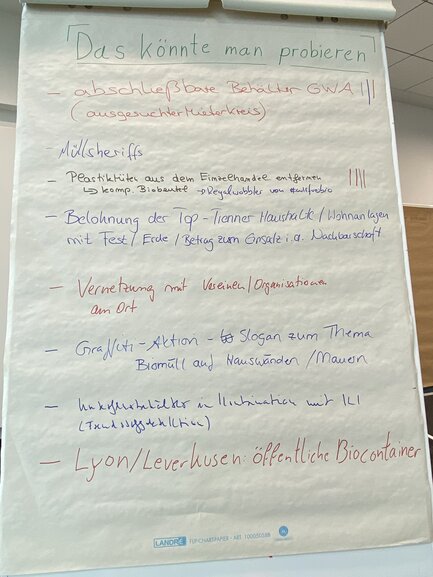 Das könnte man probieren
— abschließbare Behälter GWA |||
(ausgesuchter Mieterkreis)
— Müllsheriffs
— Plastiktüten aus dem Einzelhandel entfernen ||||
↳ komp. Biobeutel → Regalwobbler von
— Belohnung der Top-Trenner Haushalte / Wohnanlagen
mit Fest / Erde / Betrag zum Einsatz i.d. Nachbarschaft
— Vernetzung mit Vereinen / Organisationen
am Ort
— Graffiti-Aktion - Slogan zum Thema
Biomüll auf Hauswänden / Mauern
— in Kombination mit KI
— Lyon/Leverkusen: öffentliche Biocontainer
LANDRÉ FLIPCHARTPAPIER - ART.